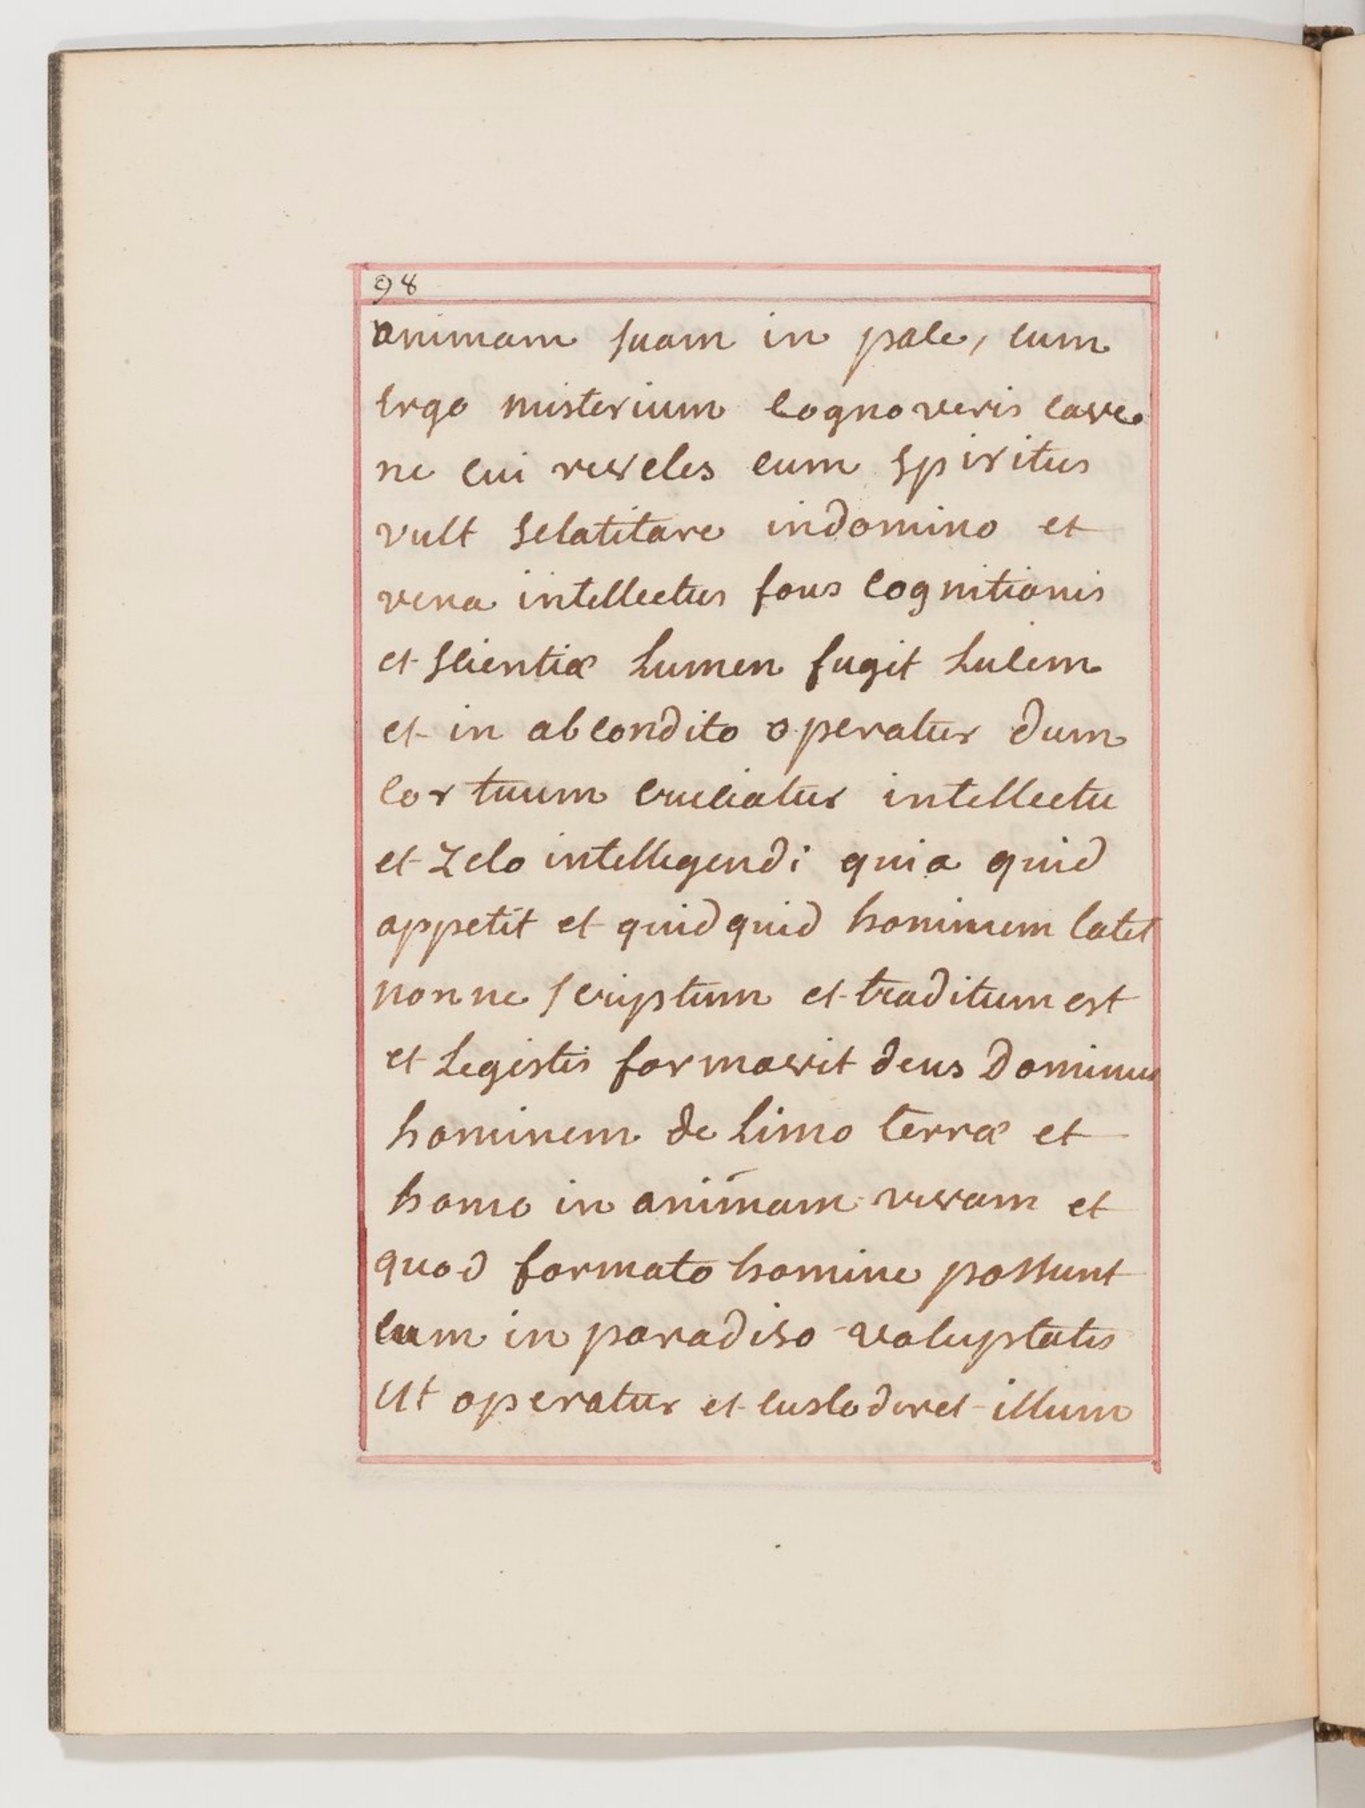 98
animam suam in pace, cum
ergo misterium cognoveris cave
ne cui reveles eum spiritus
vult selatitare indomino et
vena intellectus fons cognitionis
et scientiæ lumen fugit lucem
et in abcondito operatur dum
cor tuum cruciatur intellectu
et zelo intellegendi quia quid
appetit et quidquid hominem latet
nonne scriptum et traditum est
et legistis formavit deus Dominus
hominem de limo terræ et
homo in animam vivam et
quod formato homine possunt
eum in paradiso voluptatis
ut operatur et custoderet illum